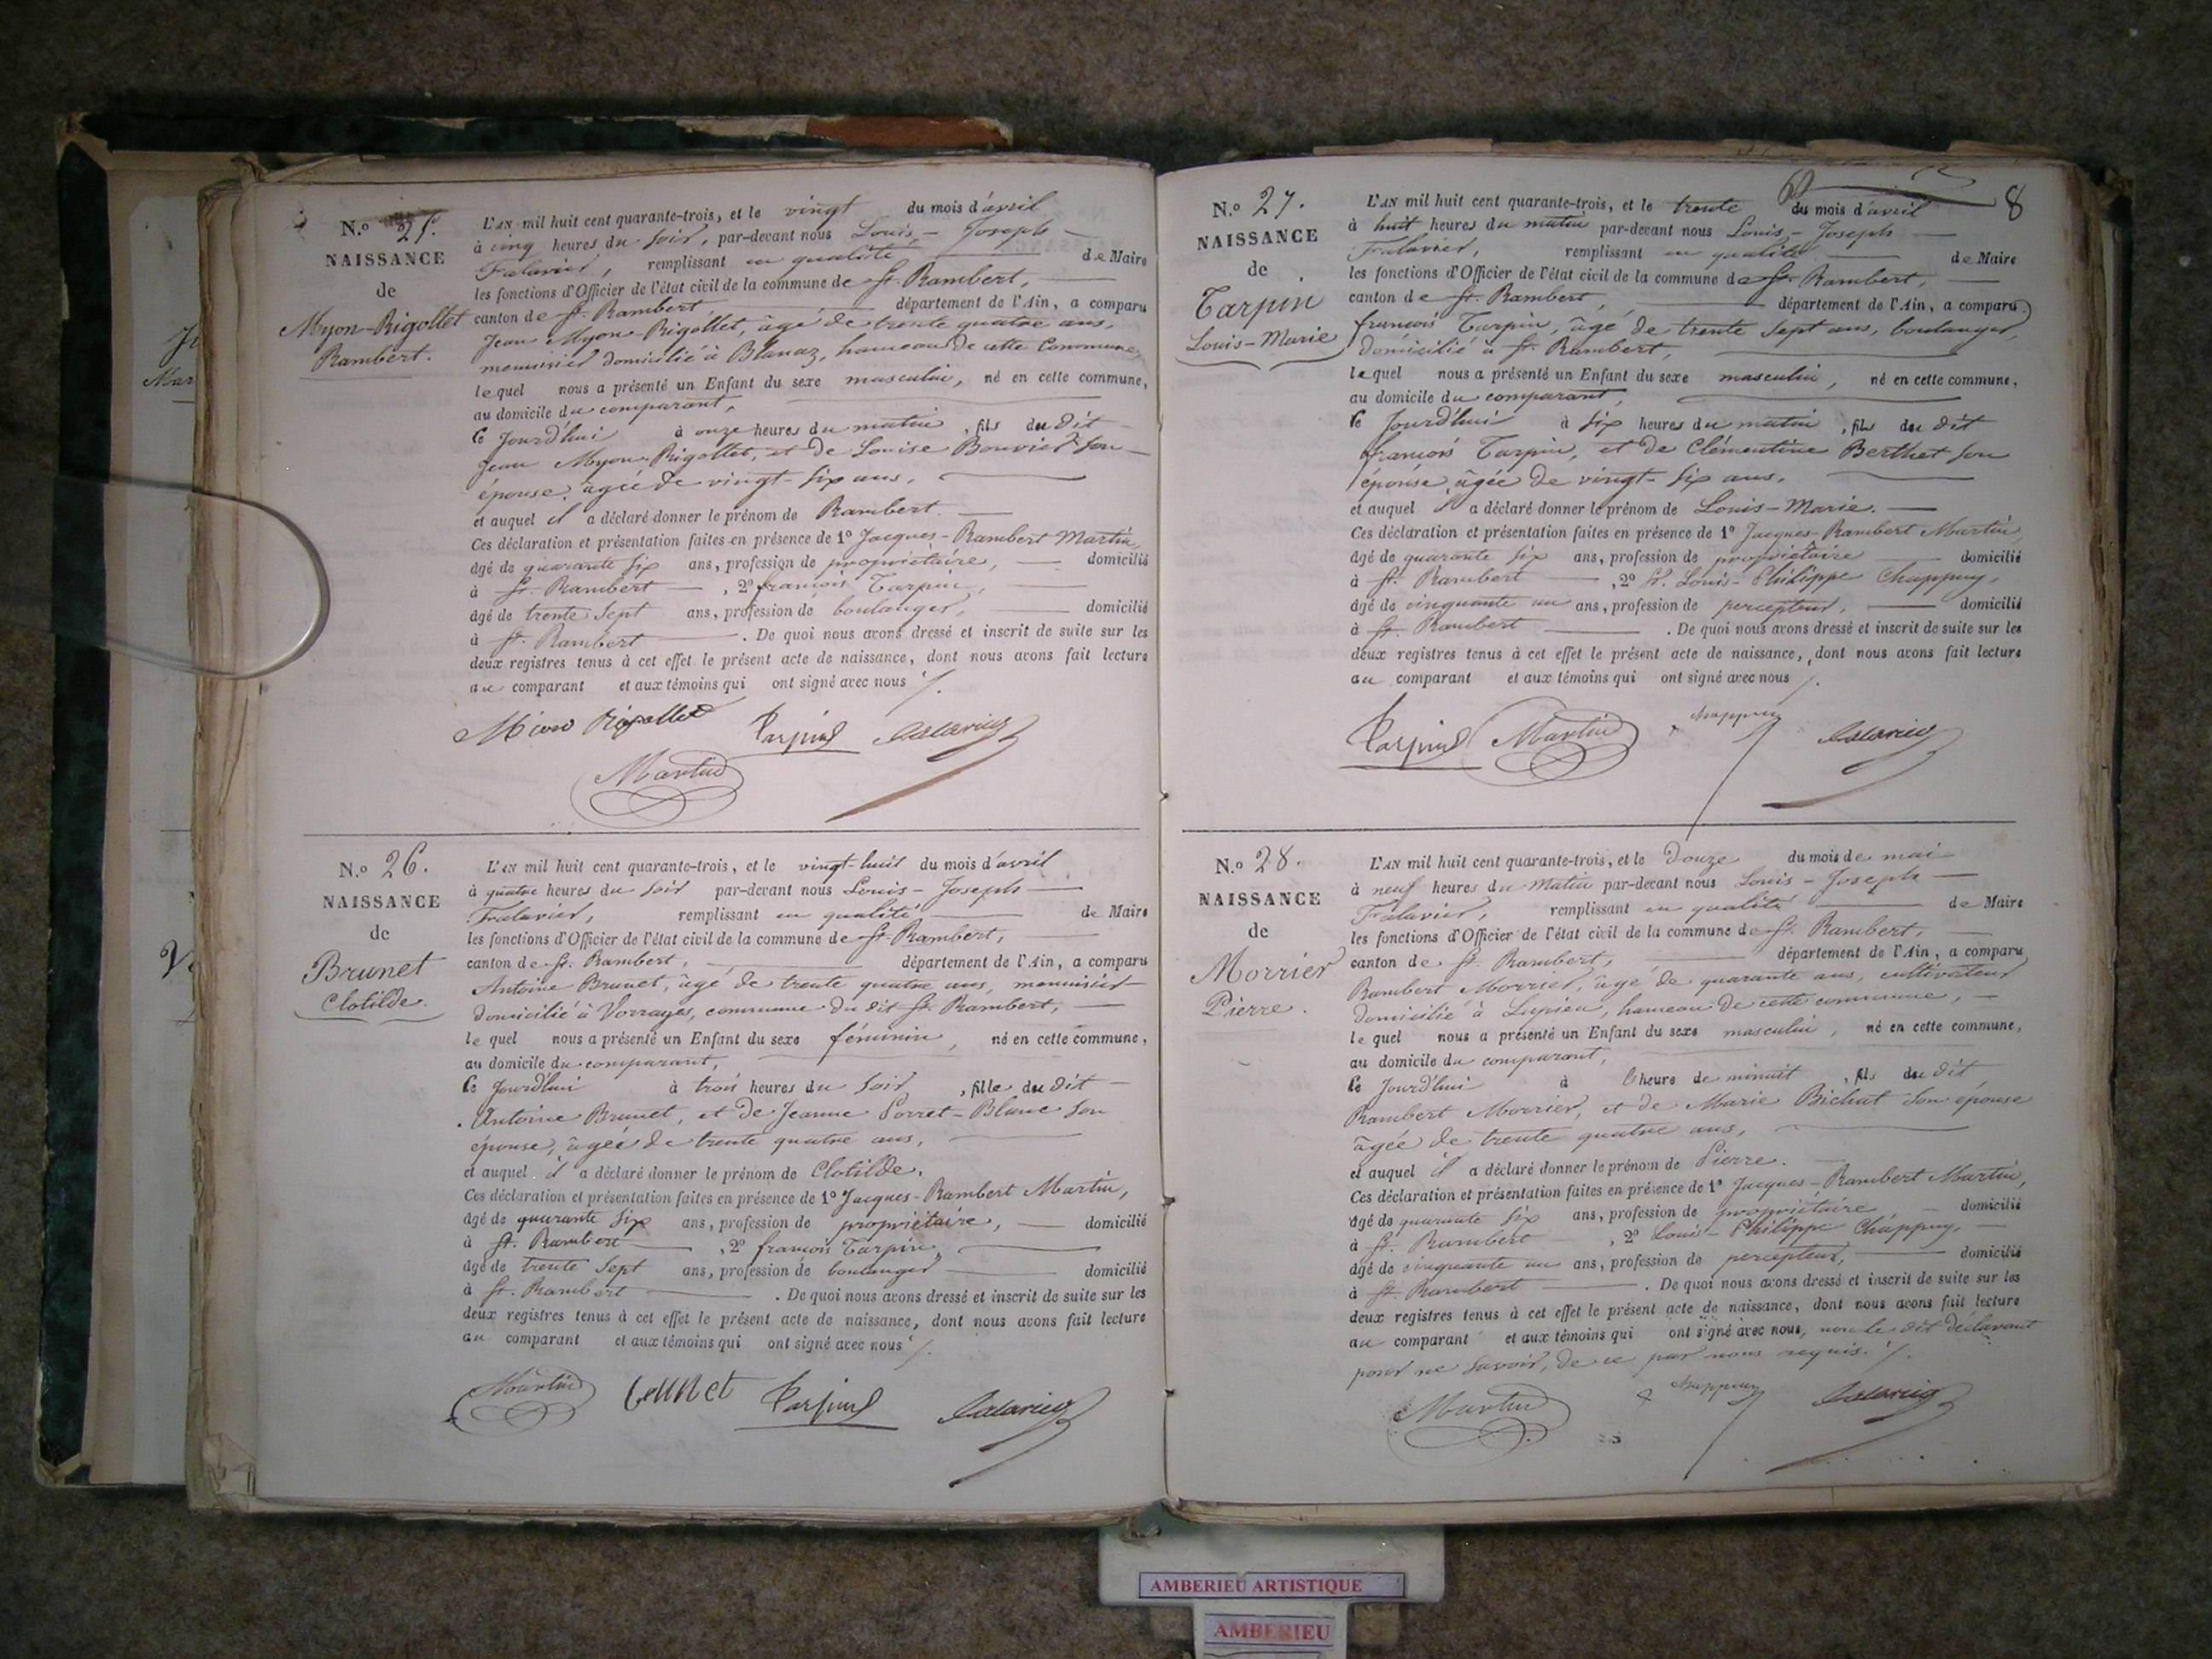 N.o 25.
NAISSANCE
de
Myon-Rigollet
Rambert.
L'AN mil huit cent quarante-trois, et le vingt du mois d'avril
à cinq heures du soir, par-devant nous Louis-Joseph
Falavier, remplissant en qualité de Maire
les fonctions d'Officier de l'état civil de la commune de St. Rambert,
canton de St. Rambert, département de l'Ain, a comparu
Jean Myon-Rigollet, âgé de trente quatre ans,
menuisier domicilié à Blanaz, hameau de cette Commune,
lequel nous a présenté un Enfant du sexe masculin, né en cette commune,
au domicile du comparant,
ce jourd'hui à onze heures du matin, fils du dit
Jean Myon-Rigollet, et de Louise Bouvier son
épouse, âgée de vingt-six ans,
et auquel il a déclaré donner le prénom de Rambert.
Ces déclaration et présentation faites en présence de 1o Jacques-Rambert Martin,
âgé de quarante six ans, profession de propriétaire, domicilié
à St. Rambert, 2o françois Tarpin,
âgé de trente sept ans, profession de boulanger, domicilié
à St. Rambert. De quoi nous avons dressé et inscrit de suite sur les
deux registres tenus à cet effet le présent acte de naissance, dont nous avons fait lecture
au comparant et aux témoins qui ont signé avec nous ./.
Mion Rigollet Tarpin Falavier
Martin
N.o 26.
NAISSANCE
de
Brunet
Clotilde.
L'AN mil huit cent quarante-trois, et le vingt-huit du mois d'avril
à quatre heures du soir par-devant nous Louis-Joseph
Falavier, remplissant en qualité de Maire
les fonctions d'Officier de l'état civil de la commune de St. Rambert,
canton de St. Rambert, département de l'Ain, a comparu
Antoine Brunet, âgé de trente quatre ans, menuisier
domicilié à Vorrayes, commune du dit St. Rambert,
lequel nous a présenté un Enfant du sexe féminin, né en cette commune,
au domicile du comparant,
ce jourd'hui à trois heures du soir, fille du dit
Antoine Brunet, et de Jeanne Porret-Blanc son
épouse, âgée de trente quatre ans,
et auquel il a déclaré donner le prénom de Clotilde.
Ces déclaration et présentation faites en présence de 1o Jacques-Rambert Martin,
âgé de quarante six ans, profession de propriétaire, domicilié
à St. Rambert, 2o françois Tarpin,
âgé de trente sept ans, profession de boulanger domicilié
à St. Rambert. De quoi nous avons dressé et inscrit de suite sur les
deux registres tenus à cet effet le présent acte de naissance, dont nous avons fait lecture
au comparant et aux témoins qui ont signé avec nous ./.
Martin Brunet Tarpin Falavier
8
N.o 27.
NAISSANCE
de
Tarpin
Louis-Marie
L'AN mil huit cent quarante-trois, et le trente du mois d'avril
à huit heures du matin par-devant nous Louis-Joseph
Falavier, remplissant en qualité de Maire
les fonctions d'Officier de l'état civil de la commune de St. Rambert,
canton de St. Rambert, département de l'Ain, a comparu
françois Tarpin, âgé de trente sept ans, boulanger,
domicilié à St. Rambert,
lequel nous a présenté un Enfant du sexe masculin, né en cette commune,
au domicile du comparant,
ce jourd'hui à six heures du matin, fils du dit
françois Tarpin, et de Clémentine Berthet son
épouse, âgée de vingt-six ans,
et auquel il a déclaré donner le prénom de Louis-Marie.
Ces déclaration et présentation faites en présence de 1o Jacques-Rambert Martin,
âgé de quarante six ans, profession de propriétaire domicilié
à St. Rambert, 2o Louis-Philippe Chappuy,
âgé de cinquante un ans, profession de percepteur, domicilié
à St. Rambert. De quoi nous avons dressé et inscrit de suite sur les
deux registres tenus à cet effet le présent acte de naissance, dont nous avons fait lecture
au comparant et aux témoins qui ont signé avec nous ./.
Tarpin Martin Chappuy Falavier
N.o 28.
NAISSANCE
de
Morrier
Pierre.
L'AN mil huit cent quarante-trois, et le douze du mois de mai
à neuf heures du matin par-devant nous Louis-Joseph
Falavier, remplissant en qualité de Maire
les fonctions d'Officier de l'état civil de la commune de St. Rambert,
canton de St. Rambert, département de l'Ain, a comparu
Rambert Morrier, âgé de quarante ans, cultivateur
domicilié à Lupieu, hameau de cette commune,
lequel nous a présenté un Enfant du sexe masculin, né en cette commune,
au domicile du comparant,
ce jourd'hui à l'heure de minuit, fils du dit
Rambert Morrier, et de Marie Bichat son épouse
âgée de trente quatre ans,
et auquel il a déclaré donner le prénom de Pierre.
Ces déclaration et présentation faites en présence de 1o Jacques-Rambert Martin,
âgé de quarante six ans, profession de propriétaire domicilié
à St. Rambert, 2o Louis-Philippe Chappuy,
âgé de cinquante un ans, profession de percepteur, domicilié
à St. Rambert. De quoi nous avons dressé et inscrit de suite sur les
deux registres tenus à cet effet le présent acte de naissance, dont nous avons fait lecture
au comparant et aux témoins qui ont signé avec nous, non le dit déclarant
pour ne savoir, de ce par nous requis. ./.
Martin Chappuy Falavier
AMBERIEU ARTISTIQUE
AMBERIEU